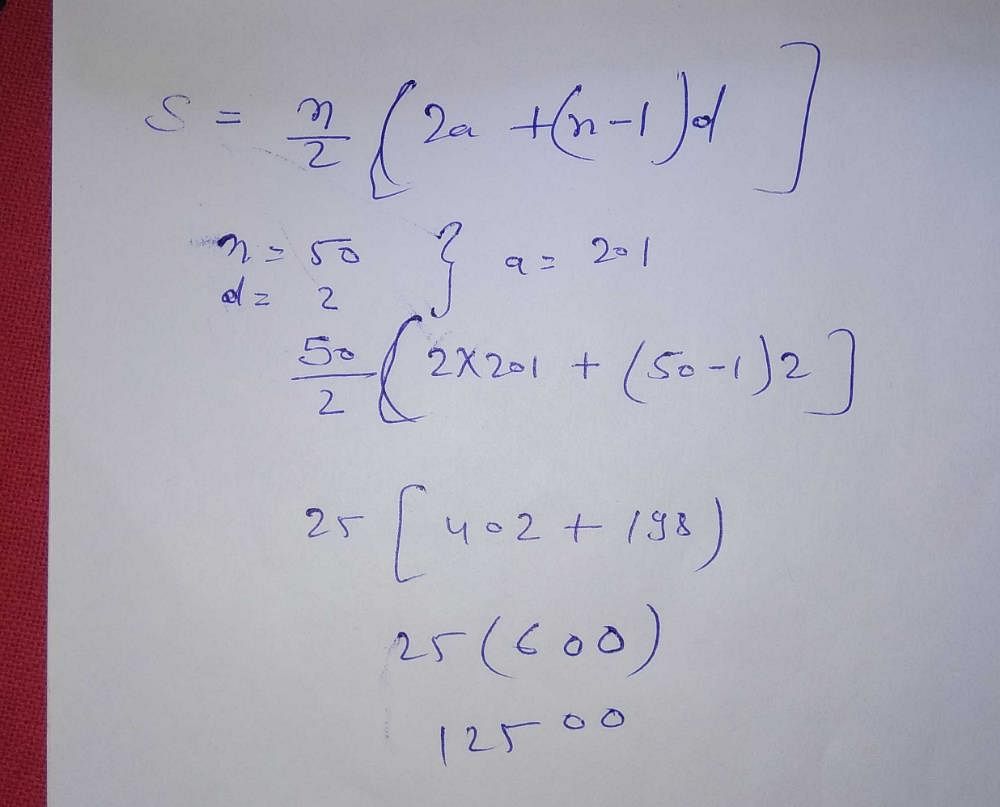 S = n/2 [2a + (n-1)d]
n = 50 } a = 201
d = 2
50/2 [2×201 + (50-1)2]
25 [402 + 198)
25 (600)
12500